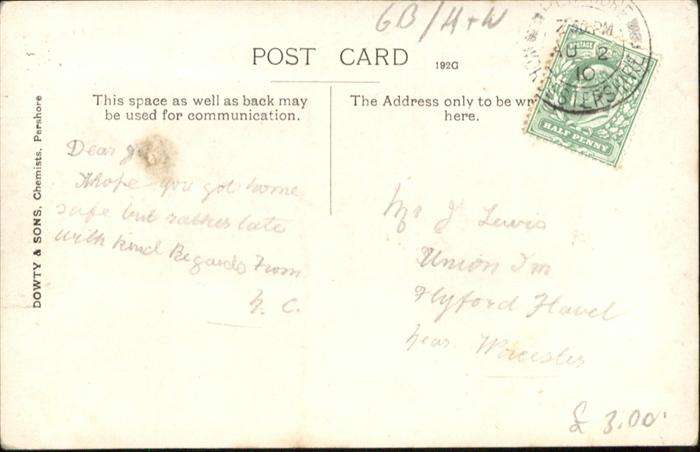 6B/H+W
POST CARD
192G
This space as well as back may
be used for communication.
The Address only to be
here.
POSTAGE
HALF PENNY
7 PM
AU 2
10
DOWTY & SONS, Chemists, Pershore
Dear
I hope you got home
safe but rather late
with kind Regards From
C.
Mr J Lewis
Union Inn
Flyford Flavel
Near Worcester
£ 3.00